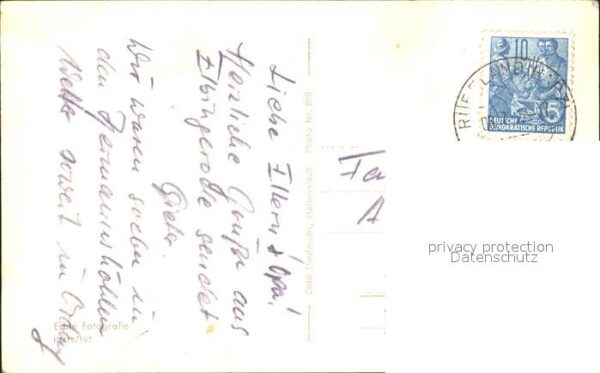 Liebe Eltern u. Opa!
Herzliche Grüße aus
Elbingerode sendet
Dieter.
Wir waren soeben in
den Hermannshöhlen
Wetter soweit in Ordng
Echte Fotografie
Otto Dietrichs, Halberstadt Photo Nr. 996
Fa
A
RÜBELAND (HARZ)
10
5
DEUTSCHE
DEMOKRATISCHE REPUBLIK
privacy protection
Datenschutz